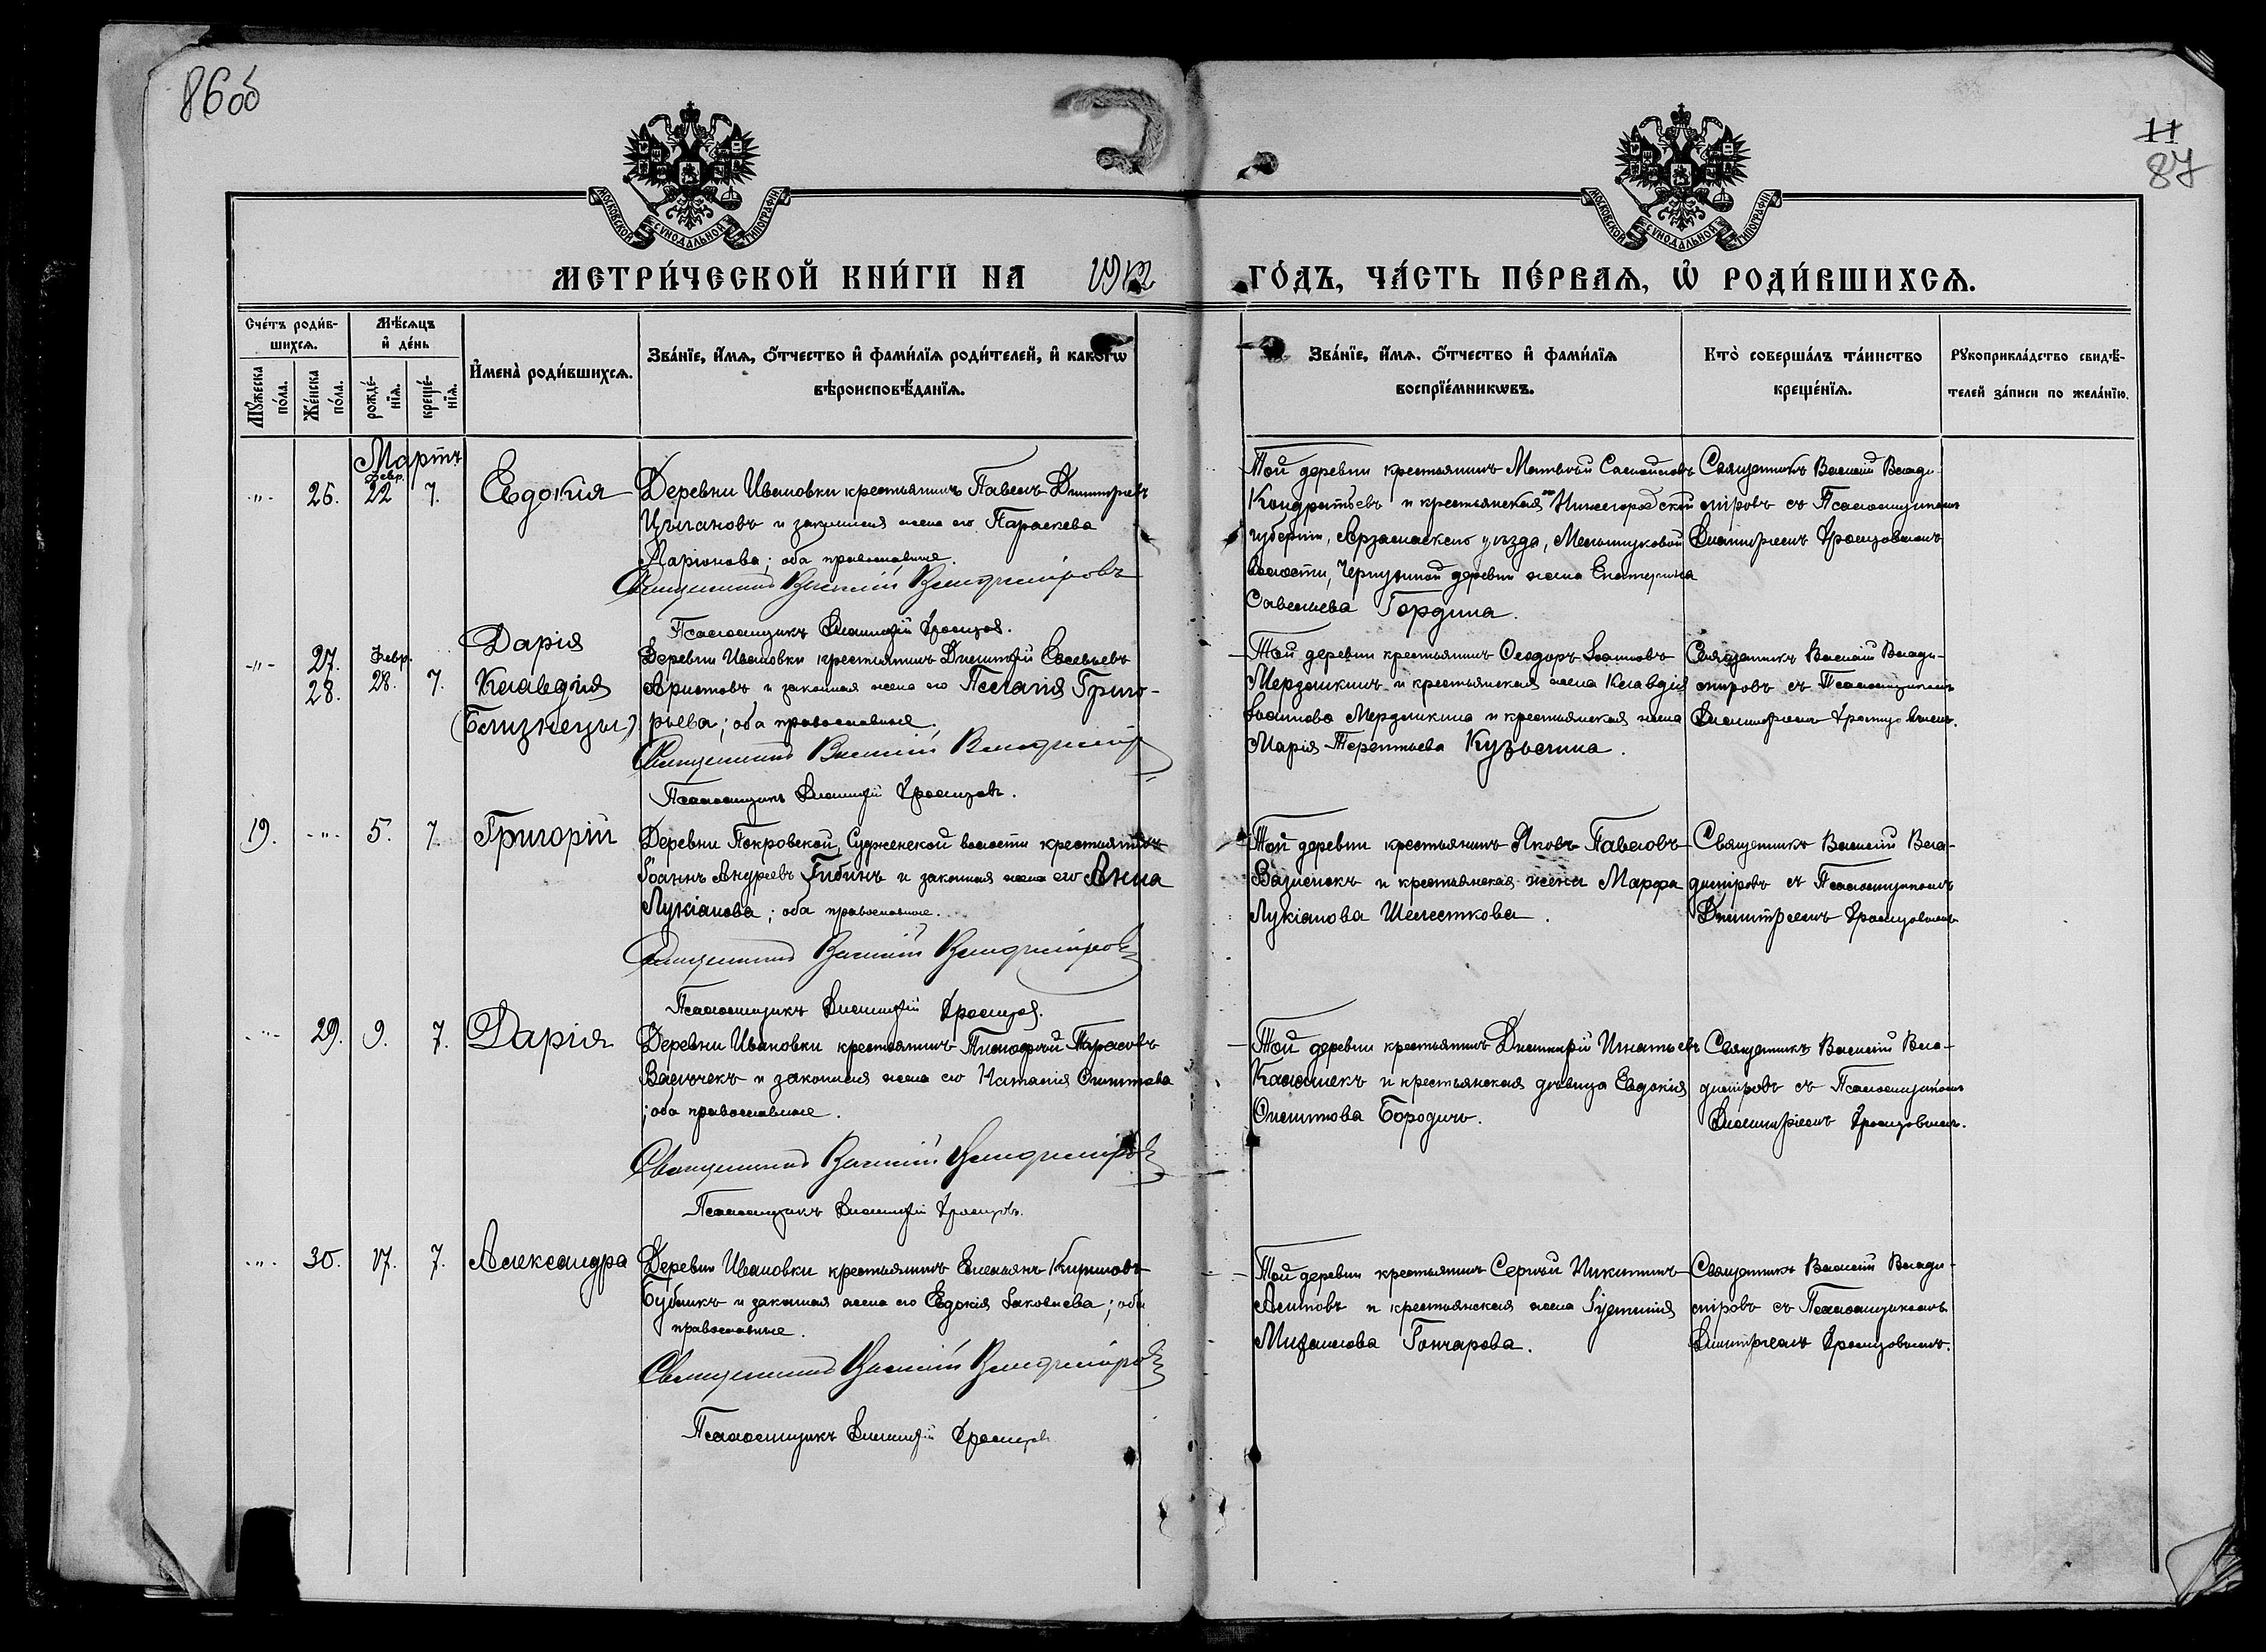 86об
11
87
МОСКОВСКОЙ СѴНОДАЛЬНОЙ ТИПОГРАФІИ
МОСКОВСКОЙ СѴНОДАЛЬНОЙ ТИПОГРАФІИ
МЕТРИ́ЧЕСКОЙ КНИ́ГИ НА 1912 ГО́ДЪ, ЧА́СТЬ ПЕ́РВАѦ, Ѡ҆ РОДИ́ВШИХСѦ.
Сче́тъ роди́в-
шихсѧ.
Мꙋ́жеска
по́ла.
Же́нска
по́ла.
Мѣ́сѧцъ
и҆ де́нь
рожде́-
нїѧ.
креще́-
нїѧ.
И҆мена̀ роди́вшихсѧ.
Зва́нїе, и҆́мѧ, ѻ҆́тчество и҆ фами́лїѧ роди́телей, и҆ како́гѡ
вѣроисповѣ́данїѧ.
Зва́нїе, и҆́мѧ, ѻ҆́тчество и҆ фами́лїѧ
воспрїе́мникѡвъ.
Кто̀ соверша́лъ та́инство
креще́нїѧ.
Рꙋкоприкла́дство свидѣ́-
телей за́писи по жела́нїю.
Мартъ
Февр.
-"- 26. 22 7. Евдокия
Деревни Ивановки крестьянинъ Павелъ Димитріевъ
Цыгановъ и законная жена его Параскева
Ларіонова; оба православные.
Священникъ Василій Владиміровъ
Псаломщикъ Димитрій
Той деревни крестьянинъ Матвѣй
Кондратьевъ и крестьянская Нижегородской
губерніи, Арзамаскаго уѣзда,
волости, деревни жена Екатерина
Савельева Гордина.
Священникъ Василій Влади-
міровъ съ Псаломщикомъ
Димитріемъ
-"- 27. 28. Февр. 28. 7.
Дарія
Клавдія
(Близнецы)
Деревни Ивановки крестьянинъ Димитрій
Аристовъ и законная жена его Пелагія Григо-
рьева; оба православные.
Священникъ Василій Владиміровъ
Псаломщикъ Димитрій
Той деревни крестьянинъ Ѳеодоръ Іоанновъ
Мерзликинъ и крестьянская жена Клавдія
Іоаннова Мерзликина и крестьянская жена
Марія Терентьева Кузьмина.
Священникъ Василій Влади-
міровъ съ Псаломщикомъ
Димитріемъ
19. -"- 5. 7. Григорій
Деревни Покровской, Судженской волости крестьянинъ
Іоаннъ Андреевъ Гибинъ и законная жена его Анна
Лукіанова; оба православные.
Священникъ Василій Владиміровъ
Псаломщикъ Димитрій
Той деревни крестьянинъ Яковъ Павловъ
и крестьянская жена Марфа
Лукіанова Шелесткова.
Священникъ Василій Вла-
диміровъ съ Псаломщикомъ
Димитріемъ
-"- 29. 9. 7. Дарія
Деревни Ивановки крестьянинъ Тимофей Тарасовъ
и законная жена его Наталія
; оба православные.
Священникъ Василій Владиміровъ
Псаломщикъ Димитрій
Той деревни крестьянинъ Димитрій Игнатьевъ
и крестьянская дѣвица Евдокія
Бородичъ.
Священникъ Василій Вла-
диміровъ съ Псаломщикомъ
Димитріемъ
-"- 30. 17. 7. Александра
Деревни Ивановки крестьянинъ Емельянъ
и законная жена его Евдокія Іаковлева; оба
православные.
Священникъ Василій Владиміровъ
Псаломщикъ Димитрій
Той деревни крестьянинъ Сергѣй Никитинъ
и крестьянская жена
Михаилова Гончарова.
Священникъ Василій Влади-
міровъ съ Псаломщикомъ
Димитріемъ